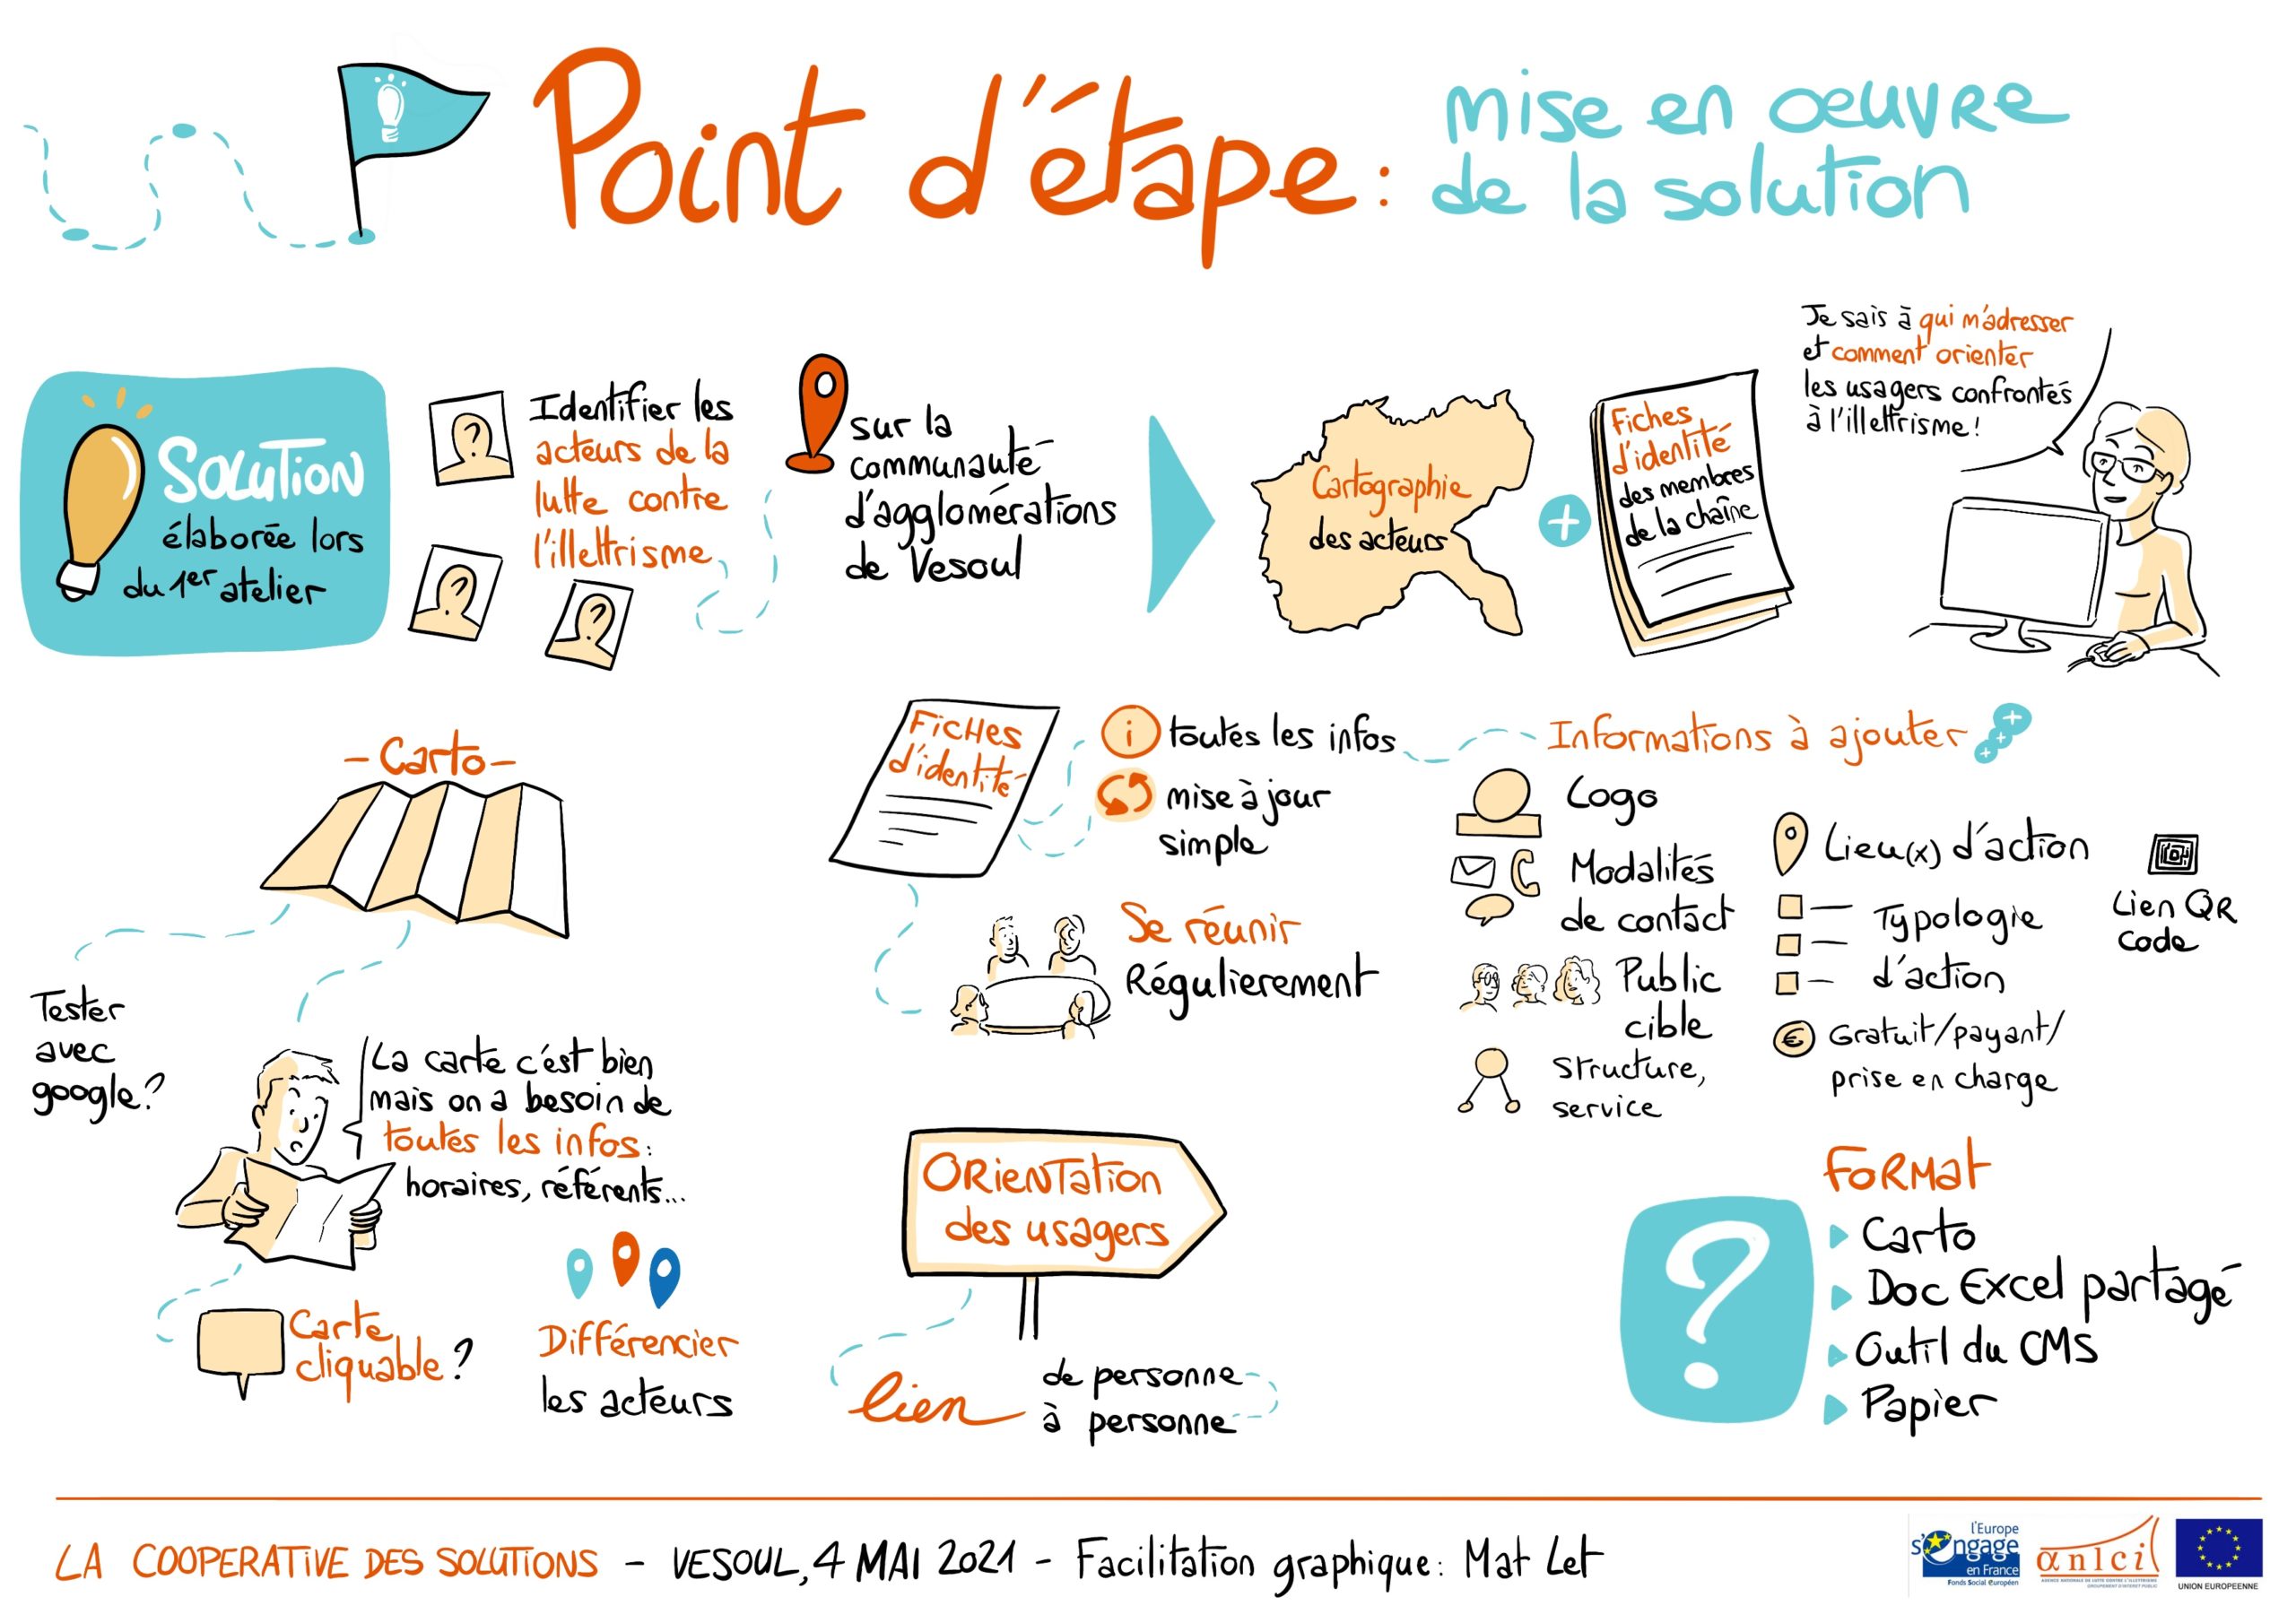 Point d'étape :
mise en oeuvre
de la solution
SOLUTION
élaborée lors
du 1er atelier
Identifier les
acteurs de la
lutte contre
l'illettrisme
sur la
communauté
d'agglomérations
de Vesoul
Cartographie
des acteurs
+
Fiches
d'identité
des membres
de la chaîne
Je sais à qui m'adresser
et comment orienter
les usagers confrontés
à l'illettrisme !
- Carto -
Tester
avec
google ?
La carte c'est bien
mais on a besoin de
toutes les infos :
horaires, référents...
Carte
cliquable ?
Différencier
les acteurs
FICHES
d'identité
i toutes les infos
mise à jour
simple
Se réunir
Régulierement
ORIENTATION
des usagers
lien
de personne
à personne
Informations à ajouter
Logo
Modalités
de contact
Public
cible
Structure,
service
Lieu(x) d'action
Typologie
d'action
€ Gratuit/payant/
prise en charge
Lien QR
code
?
FORMAT
Carto
Doc Excel partagé
Outil du CMS
Papier
LA COOPERATIVE DES SOLUTIONS - VESOUL, 4 MAI 2021 - Facilitation graphique : Mat Let
l'Europe
s'engage
en France
Fonds Social Européen
anlci
UNION EUROPEENNE